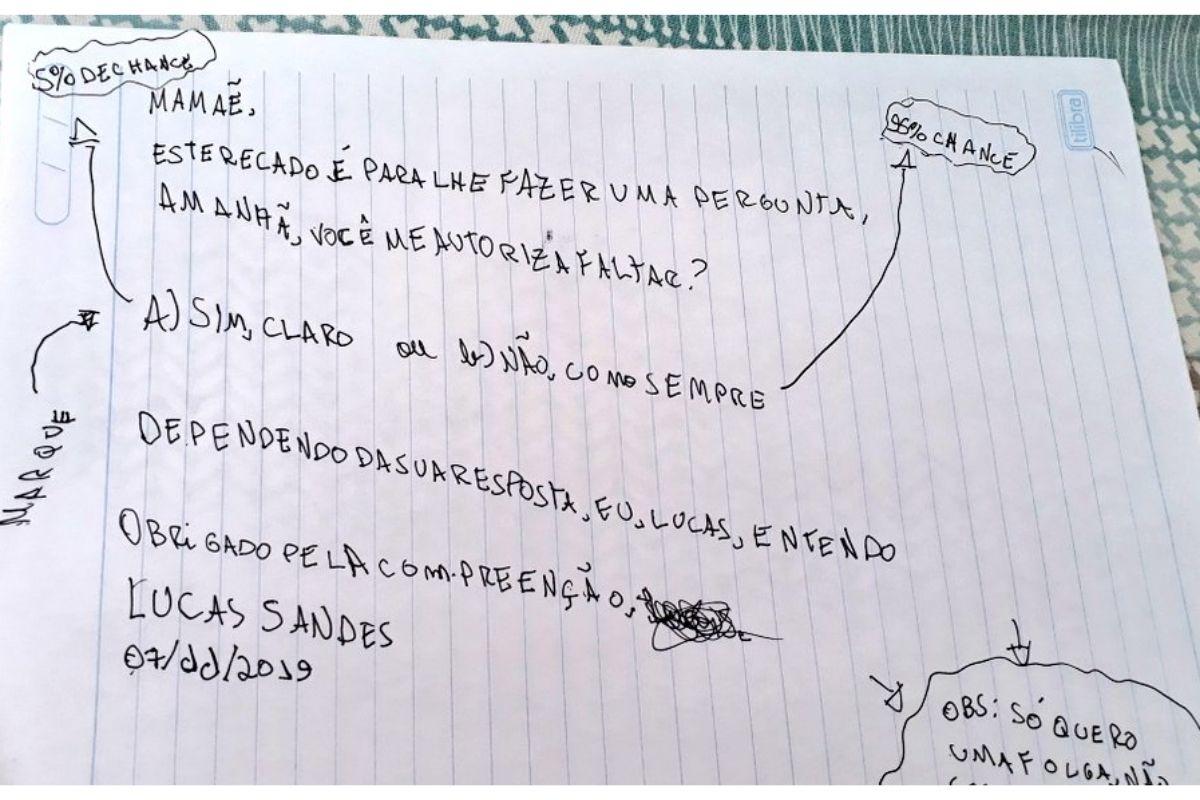 5% DE CHANCE
MAMAẼ,
95% CHANCE
tilibra
ESTE RECADO É PARA LHE FAZER UMA PERGUNTA,
AMANHÃ, VOCÊ ME AUTORIZA FALTAR?
A) SIM, CLARO ou b) NÃO, COMO SEMPRE
MARQUE
DEPENDENDO DA SUA RESPOSTA, EU, LUCAS, ENTENDO
OBRIGADO PELA COM.PREENÇÃO,
LUCAS SANDES
07/11/2019
OBS: SÓ QUERO
UMA FOLGA, NÃO